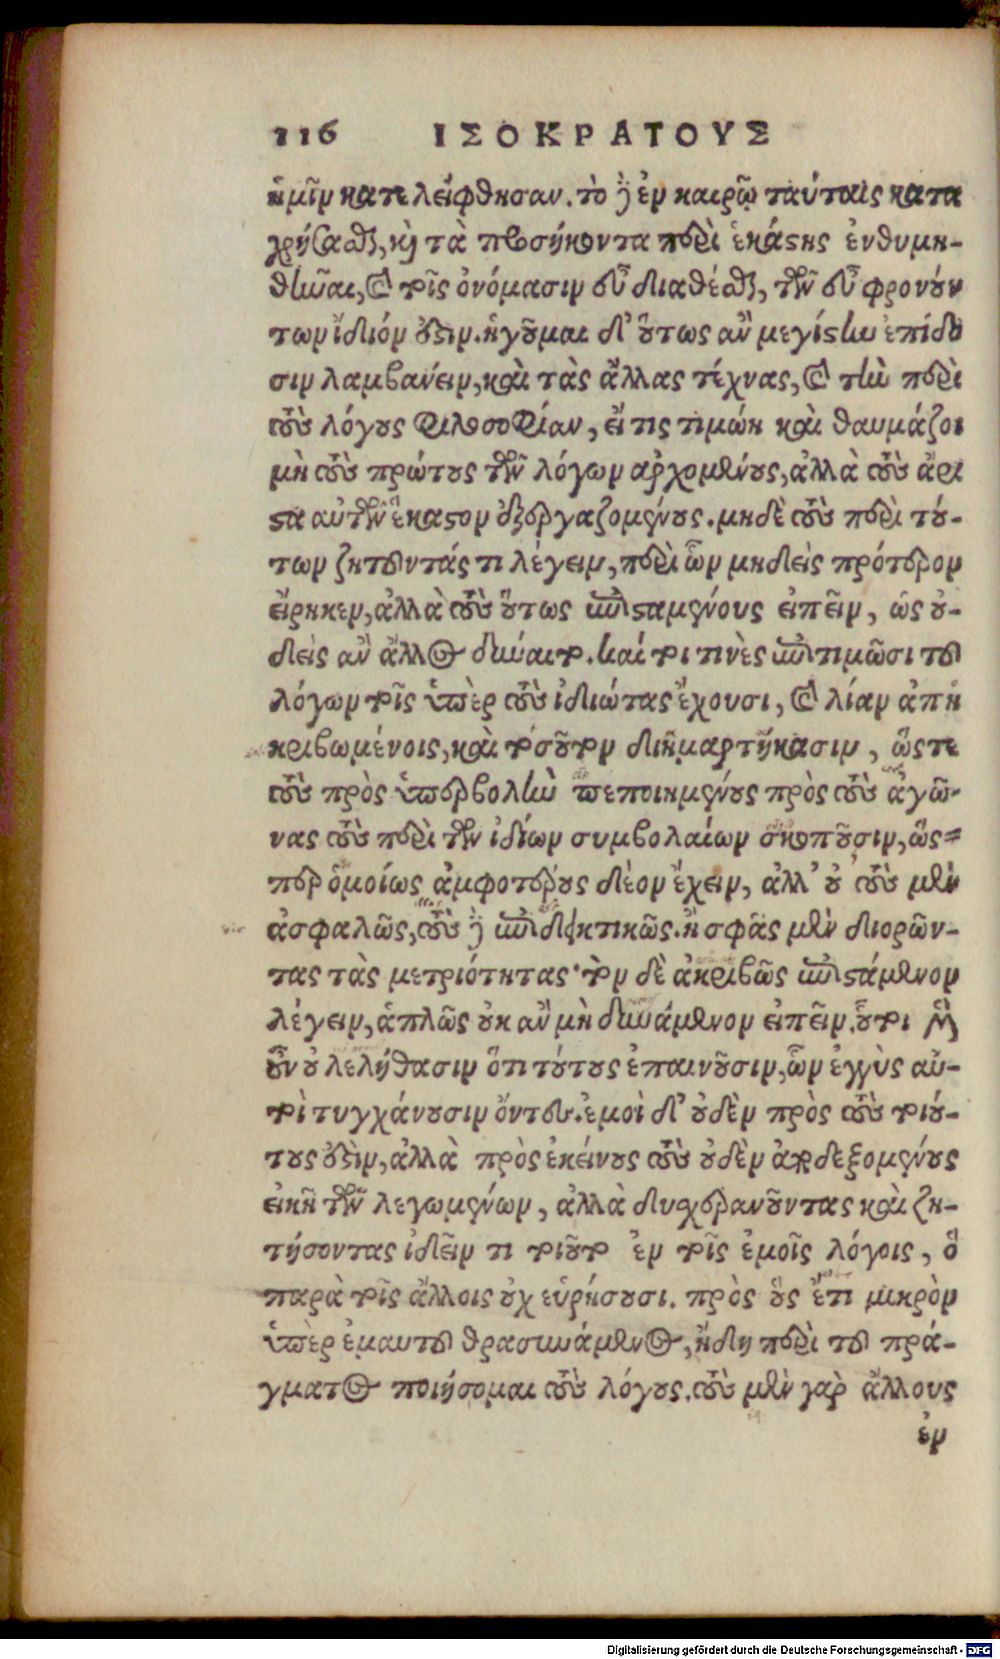 116 ΙΣΟΚΡΑΤΟΥΣ
ἡμῖν κατελείφθησαν. τὸ δ' ἐν καιρῷ ταύταις κατα
χρήσαθαι, καὶ τὰ προσήκοντα περὶ ἑκάστης ἐνθυμη-
θῆναι, καὶ τοῖς ὀνόμασιν εὖ διαθέσθαι, τῶν εὖ φρονούν
των ἴδιόν ἐστιν. ἡγοῦμαι δ' οὕτως ἂν μεγίστην ἐπίδο
σιν λαμβάνειν, καὶ τὰς ἄλλας τέχνας, καὶ τὴν περὶ
τοὺς λόγους φιλοσοφίαν, εἴ τις τιμώη καὶ θαυμάζοι
μὴ τοὺς πρώτους τῶν λόγων ἀρχομένους, ἀλλὰ τοὺς ἄρι
στα αὐτῶν ἕκαστον ἐξεργαζομένους. μηδὲ τοὺς περὶ τού-
των ζητοῦντάς τι λέγειν, περὶ ὧν μηδεὶς πρότερον
εἴρηκεν, ἀλλὰ τοὺς οὕτως ἐπισταμένους εἰπεῖν, ὡς οὐ-
δεὶς ἂν ἄλλος δύναιτο. καίτοι τινὲς ἐπιτιμῶσι τοῦ
λόγων τοῖς ὑπὲρ τοὺς ἰδιώτας ἔχουσι, καὶ λίαν ἀπη
κριβωμένοις, καὶ τοσοῦτον διημαρτήκασιν, ὥστε
τοὺς πρὸς ὑπερβολὴν πεποιημένους πρὸς τοὺς ἀγῶ-
νας τοὺς περὶ τῶν ἰδίων συμβολαίων σκοποῦσιν, ὥς-
περ ὁμοίως ἀμφοτέρους δέον ἔχειν, ἀλλ' οὐ τοὺς μὲν
ἀσφαλῶς, τοὺς δ' ἐπιδεικτικῶς. ἢ σφᾶς μὲν διορῶν-
τας τὰς μετριότητας· τὸν δὲ ἀκριβῶς ἐπιστάμενον
λέγειν, ἁπλῶς οὐκ ἂν μὴ δυνάμενον εἰπεῖν. οὗτοι μὲν
οὖν οὐ λελήθασιν ὅτι τούτους ἐπαινοῦσιν, ὧν ἐγγὺς αὐ-
τοὶ τυγχάνουσιν ὄντες. ἐμοὶ δ' οὐδὲν πρὸς τοὺς τοιού-
τους ἐστὶν, ἀλλὰ πρὸς ἐκείνους τοὺς οὐδὲν ἀποδεξομένους
εἰκῆ τῶν λεγομένων, ἀλλὰ δυχερανοῦντας καὶ ζη-
τήσοντας ἰδεῖν τι τοιοῦτο ἐν τοῖς ἐμοῖς λόγοις, ὃ
παρὰ τοῖς ἄλλοις οὐχ εὑρήσουσι. πρὸς οὓς ἔτι μικρὸν
ὑπὲρ ἐμαυτοῦ θρασυνάμενος, ἤδη περὶ τοῦ πρά-
γματος ποιήσομαι τοὺς λόγους. τοὺς μὲν γὰρ ἄλλους
ἐν
Digitalisierung gefördert durch die Deutsche Forschungsgemeinschaft - DFG